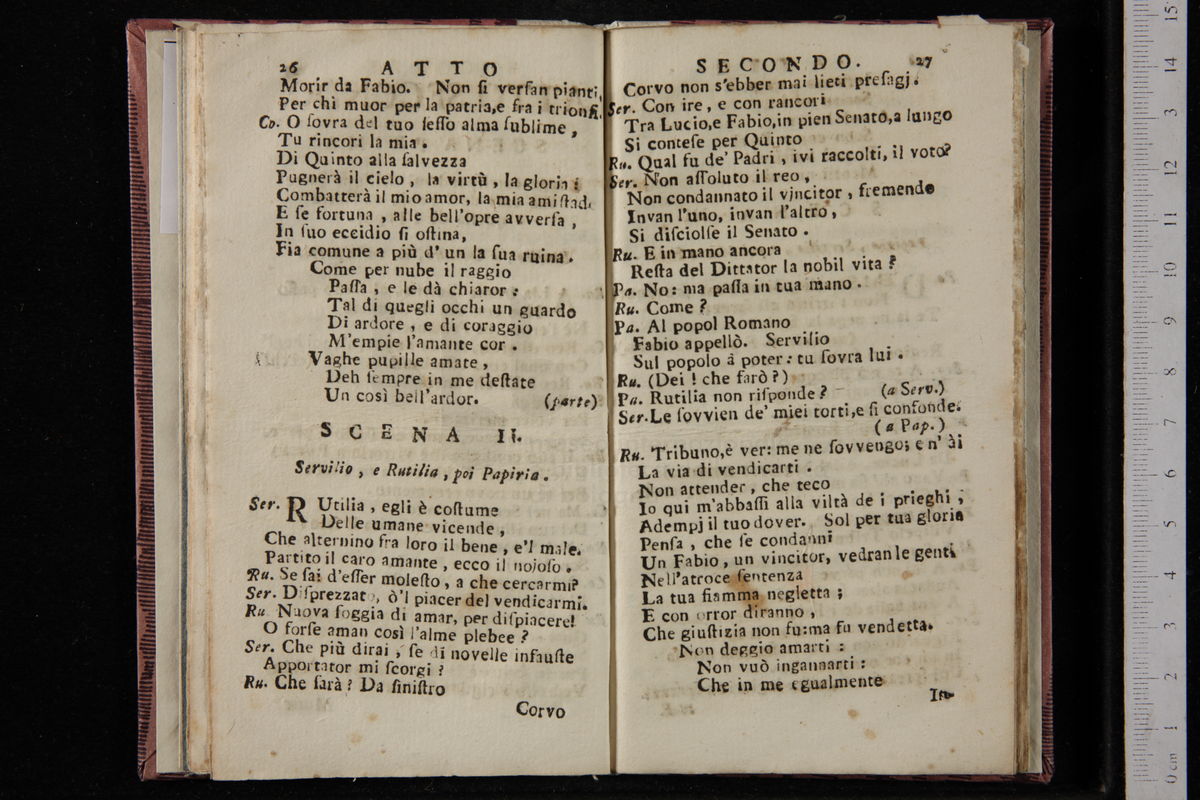 26 ATTO
Morir da Fabio. Non ſi verſan pianti,
Per chi muor per la patria,e fra i trionfi.
Co. O ſovra del tuo ſeſſo alma ſublime,
Tu rincori la mia.
Di Quinto alla ſalvezza
Pugnerà il cielo, la virtù, la gloria:
Combatterà il mio amor, la mia amiſtad.
E ſe fortuna, alle bell'opre avverſa,
In ſuo eccidio ſi oſtina,
Fia comune a più d'un la ſua ruina.
Come per nube il raggio
Paſſa, e le dà chiaror:
Tal di quegli occhi un guardo
Di ardore, e di coraggio
M'empie l'amante cor.
Vaghe pupille amate,
Deh ſempre in me deſtate
Un così bell'ardor. (parte)
SCENA II.
Servilio, e Rutilia, poi Papiria.
Ser. RUtilia, egli è coſtume
Delle umane vicende,
Che alternino fra loro il bene, e'l male.
Partito il caro amante, ecco il nojoſo.
Ru. Se ſai d'eſſer moleſto, a che cercarmi?
Ser. Diſprezzato, ò'l piacer del vendicarmi.
Ru Nuova foggia di amar, per diſpiacere!
O forſe aman così l'alme plebee?
Ser. Che più dirai, ſe di novelle infauſte
Apportator mi ſcorgi?
Ru. Che ſarà? Da ſiniſtro
Corvo
SECONDO. 27
Corvo non s'ebber mai lieti preſagj.
Ser. Con ire, e con rancori
Tra Lucio,e Fabio,in pien Senato,a lungo
Si conteſe per Quinto
Ru. Qual fu de' Padri, ivi raccolti, il voto?
Ser. Non aſſoluto il reo,
Non condannato il vincitor, fremendo
Invan l'uno, invan l'altro,
Si diſciolſe il Senato.
Ru. E in mano ancora
Reſta del Dittator la nobil vita?
Pa. No: ma paſſa in tua mano.
Ru. Come?
Pa. Al popol Romano
Fabio appellò. Servilio
Sul popolo à poter: tu ſovra lui.
Ru. (Dei! che farò?)
Pa. Rutilia non riſponde? (a Serv.)
Ser.Le ſovvien de' miei torti,e ſi confonde.
(a Pap.)
Ru. Tribuno,è ver: me ne ſovvengo; e n' ài
La via di vendicarti.
Non attender, che teco
Io qui m'abbaſſi alla viltà de i prieghi,
Adempj il tuo dover. Sol per tua gloria
Penſa, che ſe condanni
Un Fabio, un vincitor, vedran le genti
Nell'atroce ſentenza
La tua fiamma negletta;
E con orror diranno,
Che giuſtizia non fu:ma fu vendetta.
Non deggio amarti:
Non vuò ingannarti:
Che in me egualmente